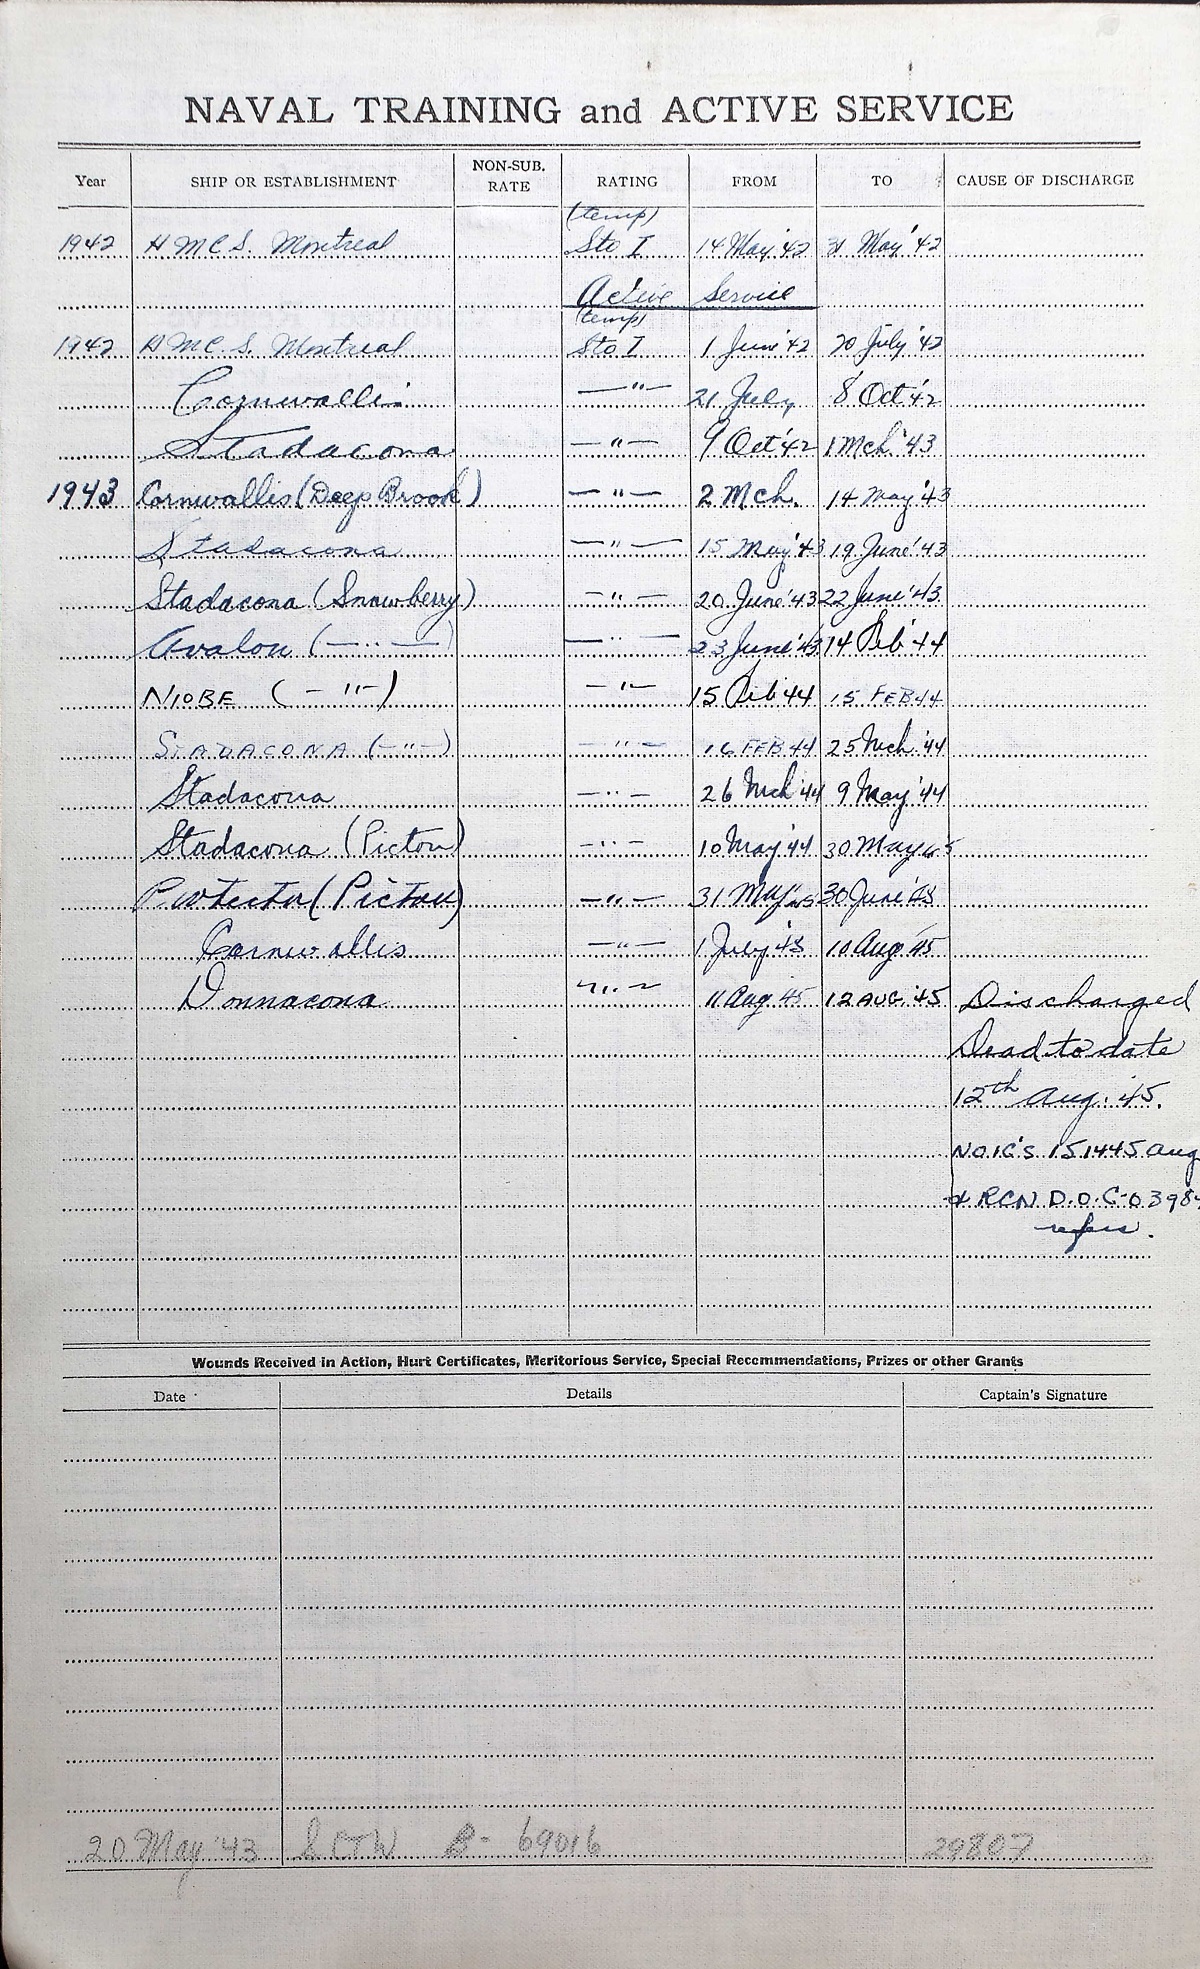 NAVAL TRAINING and ACTIVE SERVICE
Year SHIP OR ESTABLISHMENT NON-SUB. RATE RATING FROM TO CAUSE OF DISCHARGE
(temp)
1942 H M C S. Montreal Sto I 14 May '42 31 May '42
Active Service
(temp)
1942 H M C. S. Montreal Sto I 1 June '42 20 July '42
Cornwallis —"— 21 July 8 Oct '42
Stadacona —"— 9 Oct '42 1 Mch '43
1943 Cornwallis (Deep Brook) —"— 2 Mch. 14 May '43
Stadacona —"— 15 May '43 19 June '43
Stadacona (Snowberry) —"— 20 June '43 22 June '43
Avalon (—"—) —"— 23 June '43 14 Feb '44
NIOBE (—"—) —"— 15 Feb '44 15 FEB 44
STADACONA (—"—) —"— 16 FEB 44 25 Mch '44
Stadacona —"— 26 Mch '44 9 May '44
Stadacona (Picton) —"— 10 May '44 30 May 45
Protector (Pictou) —"— 31 May '45 30 June '45
Cornwallis —"— 1 July '45 10 Aug '45
Donnacona —"— 11 Aug 45 12 AUG '45 Discharged
Dead to date
12th Aug. '45.
NOIC'S 151445 Aug
& RCN D.O.C-0 398
refers.
Wounds Received in Action, Hurt Certificates, Meritorious Service, Special Recommendations, Prizes or other Grants
Date Details Captain's Signature
20 May '43 B- 69016 29807